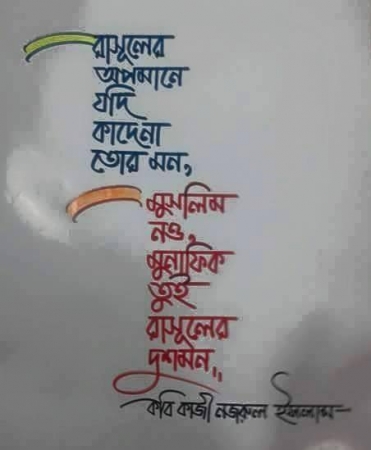 রাসূলের
অপমানে
যদি
কাদেনা
তোর মন,
মুসলিম
নও,
মুনাফিক
তুই
রাসূলের
দুশমন..
কবি কাজী নজরুল ইসলাম